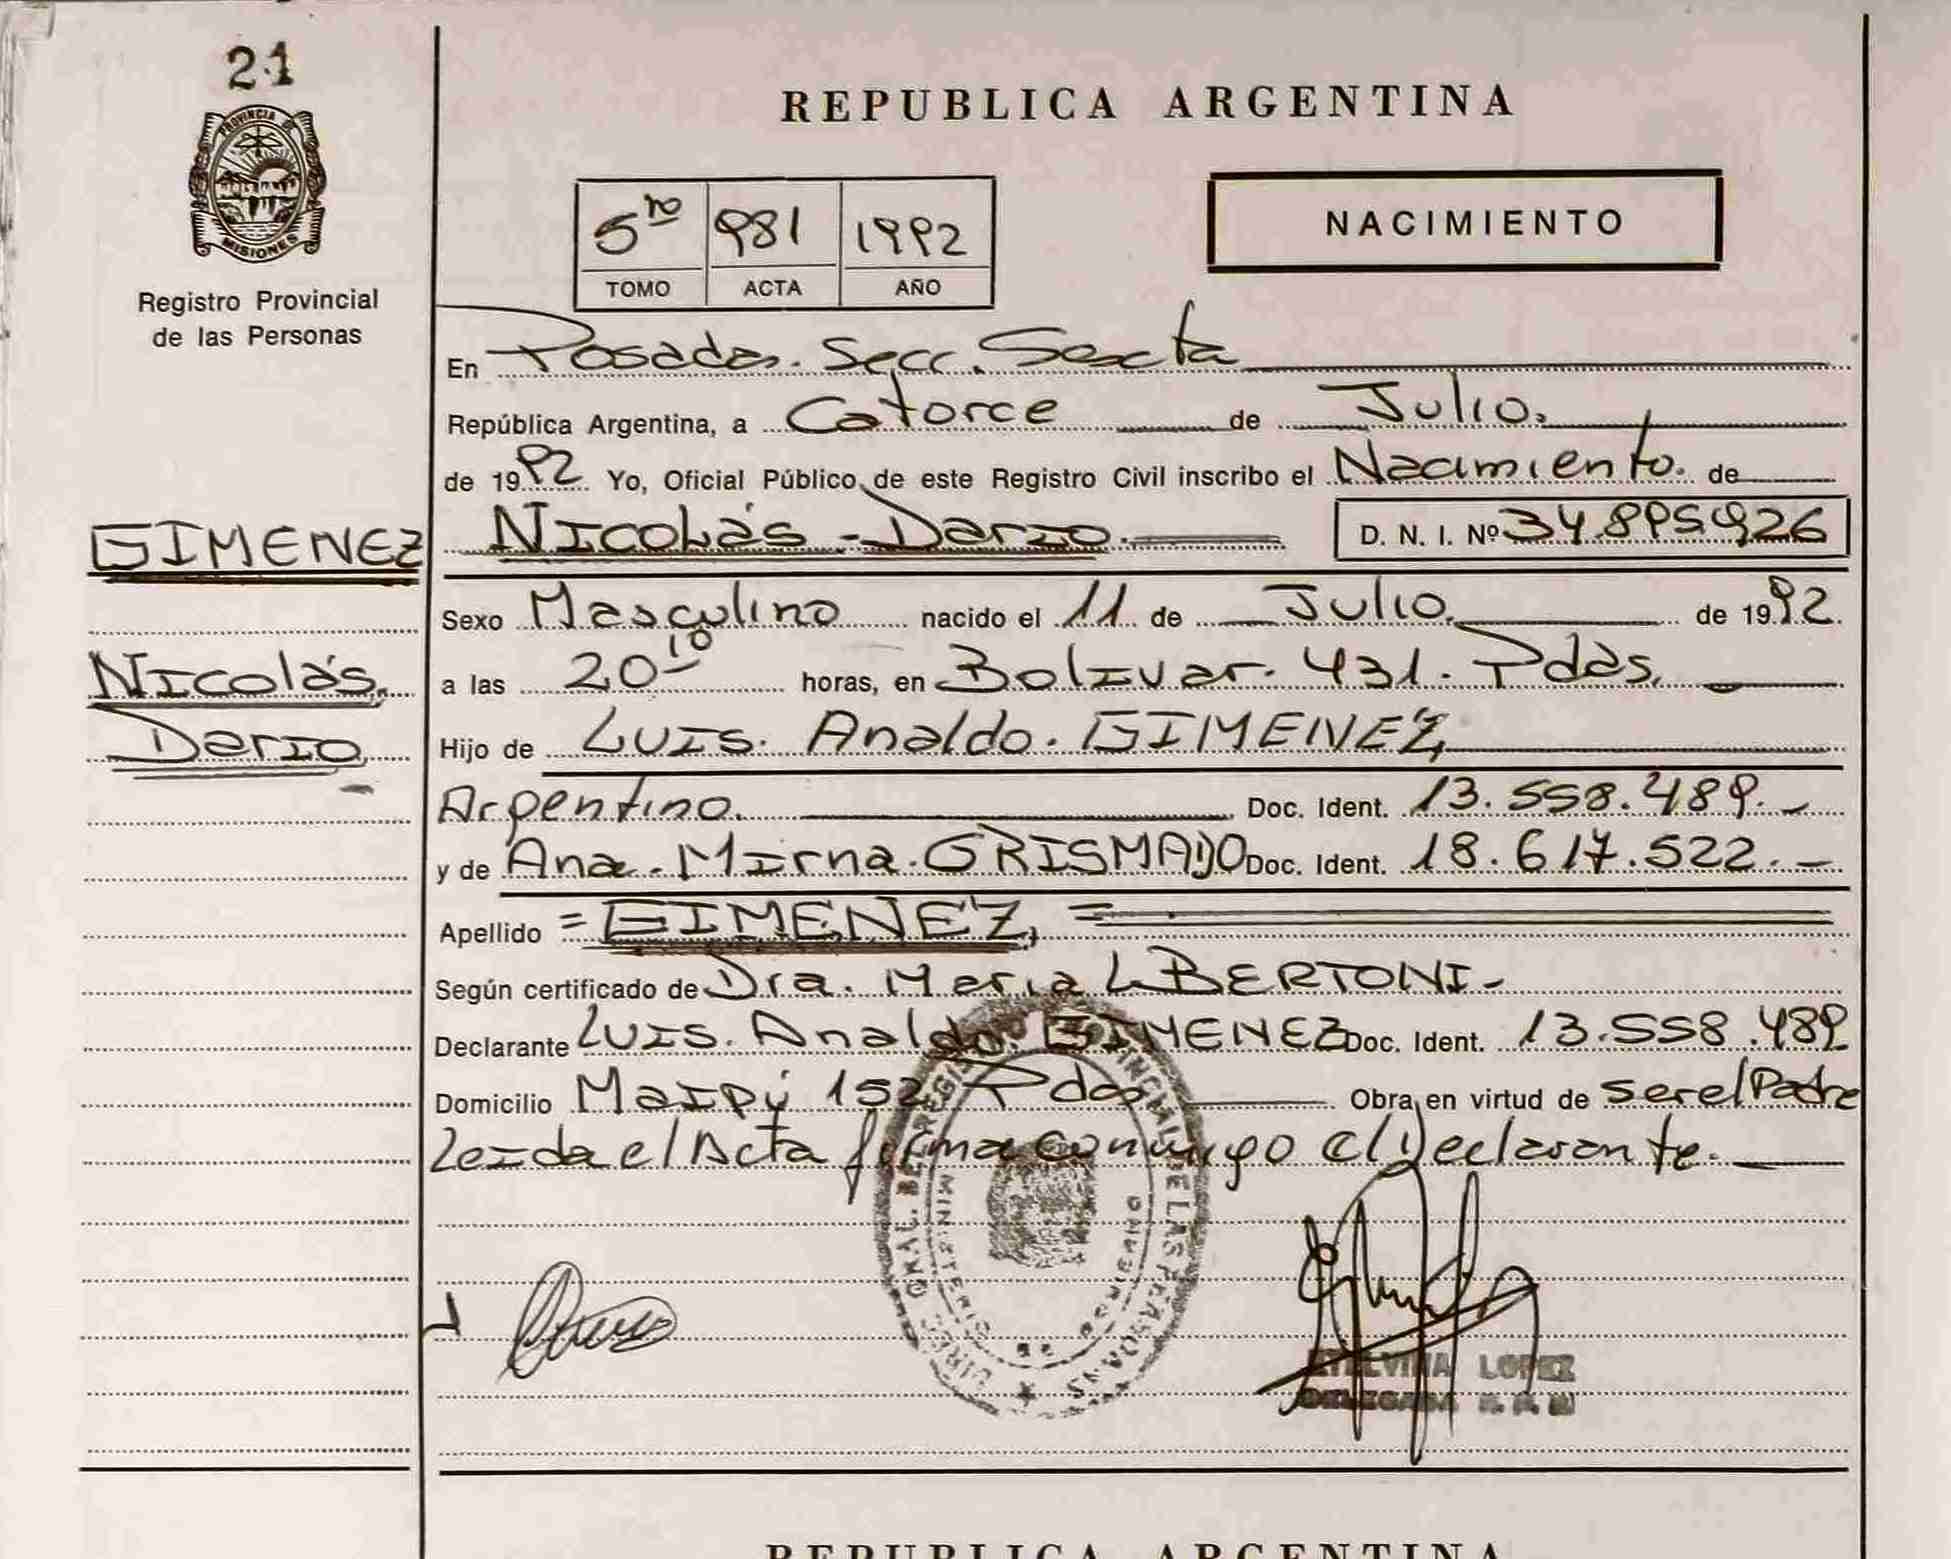 21
PROVINCIA DE
MISIONES
Registro Provincial
de las Personas
REPUBLICA ARGENTINA
5to 981 1992
TOMO ACTA AÑO
NACIMIENTO
En Posadas. Secc. Sexta
República Argentina, a Catorce de Julio.
de 1992 Yo, Oficial Público de este Registro Civil inscribo el Nacimiento. de
GIMENEZ
Nicolás - Darío. D. N. I. Nº 34.895.926
Sexo Masculino nacido el 11 de Julio. de 1992.
Nicolás,
Darío
a las 20 10 horas, en Bolívar. 431. Pdas.
Hijo de Luis. Analdo. GIMENEZ,
Argentino. Doc. Ident. 13.558.489.
y de Ana. Mirna. GRISMADO Doc. Ident. 18.617.522.
Apellido = GIMENEZ, =
Según certificado de Dra. Maria L BERTONI -
Declarante Luis. Analdo. GIMENEZ Doc. Ident. 13.558.489
Domicilio Maipú 152 Pdas Obra en virtud de ser el Padre
Leida el Acta firma conmigo el Declarante.
MINISTERIO DE GOBIERNO
DE LAS PERSONAS
ETELVINA LOPEZ
DELEGADA
REPUBLICA ARGENTINA